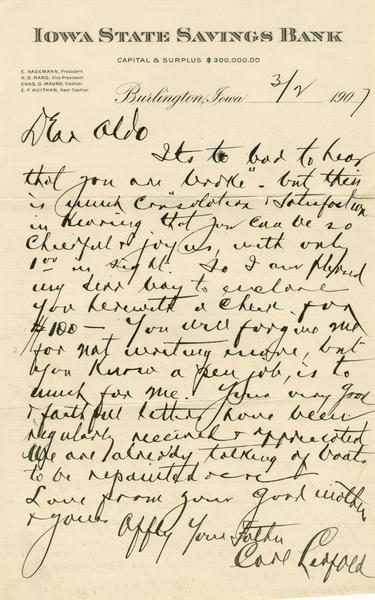 IOWA STATE SAVINGS BANK
CAPITAL & SURPLUS $300,000.00
E. HAGEMANN, President.
H. S. RAND, Vice President.
CHAS. G. MAURO, Cashier.
E. F. KUITHAN, Asst Cashier.
Burlington, Iowa 3/2 1907
Dear Aldo
Its to bad to hear
that you are "broke" - but there
is much Consolation & Satisfaction
in hearing that you can be so
Cheerful & joyous, with only
1 00 in sight. So I am pleased
my dear boy to enclose
you herewith a check for
$100 — You will forgive me
for not writing more, but
you know a pen job, is to
much for me. Your very good
& faithful letters have been
regularly received & appreciated
We are already talking of boats
to be repainted
Love from your good mother
& yours
Affly Your Father
Carl Leopold